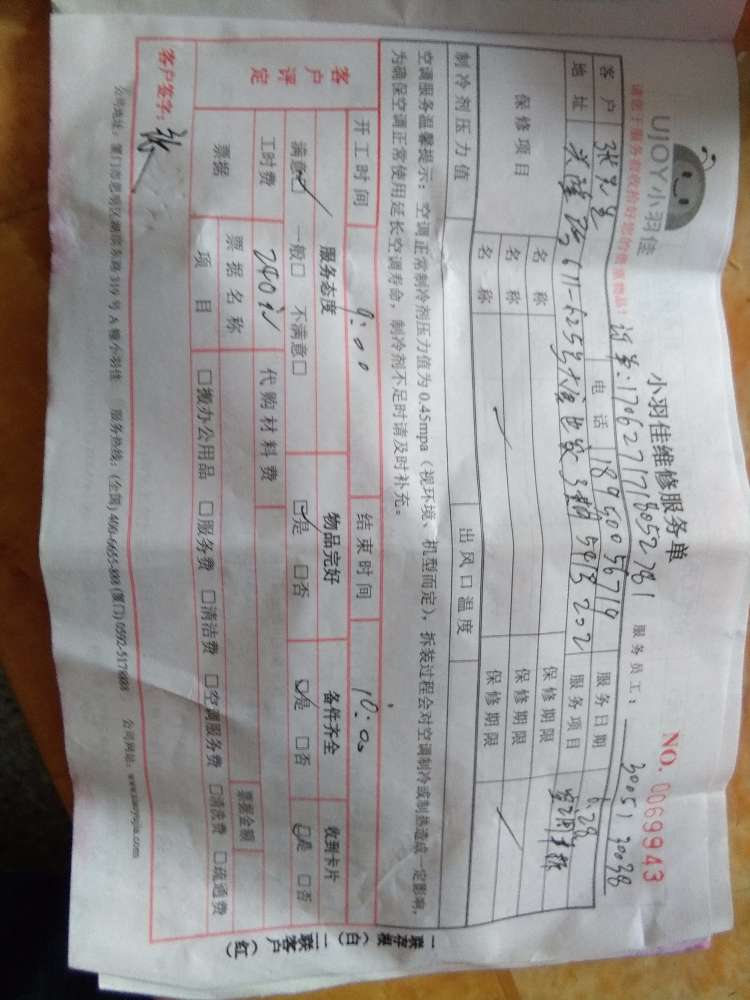 UJOY小羽佳
小羽佳维修服务单
NO. 0069943
请您于服务验收拾好您的贵重物品！
订单:170627171805278 1
服务员工： 30051 30038
客户 张先生 电话 18950056719 服务日期 6.28
地址 611-625号 3梯 202 服务项目 空调
保修项目 名称 保修期限
名称 保修期限
名称 保修期限
制冷剂压力值 出风口温度
空调服务温馨提示：空调正常制冷剂压力值为0.45mpa（视环境、机型而定），拆装过程会对空调制冷或制热造成一定影响，
为确保空调正常使用延长空调寿命，制冷剂不足时请及时补充。
客户评定 开工时间 9:00 结束时间 10:00
服务态度 物品完好 备件齐全 收到卡片
满意☑ 一般□ 不满意□ ☑是 □否 ☑是 □否 ☑是 □否
工时费 240元 代购材料费
票据 票据名称 票据金额
项目 □搬办公用品 □服务费 □清洁费 □空调服务费 □清洗费 □疏通费
客户签字：张
公司地址：厦门市思明区湖滨东路319号A幢小羽佳 服务热线：(全国) 400-6655-888 (厦门) 0592-5178888 公司网址：www.xiaoyujia.com
一联存根（白）二联客户（红）